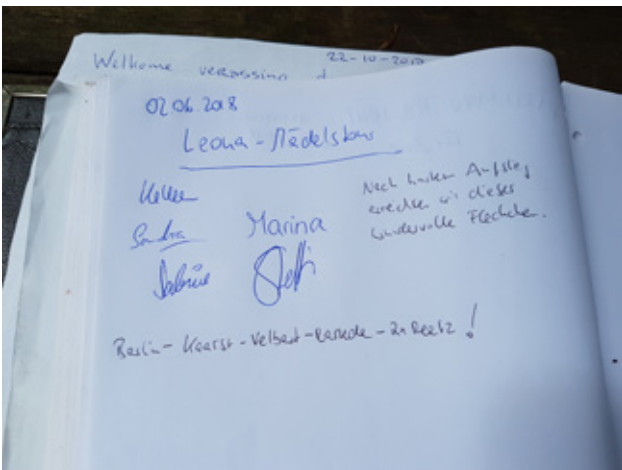 Welkome verassing d
22-10-2017
02.06.2018
Leona - Mädelstour
Heike
Sandra
Marina
Sabrine
Steffi
Nach hartem Aufstieg
erreichten wir dieses
wundervolle Fleckchen.
Berlin - Kaarst - Velbert - - in Reetz!